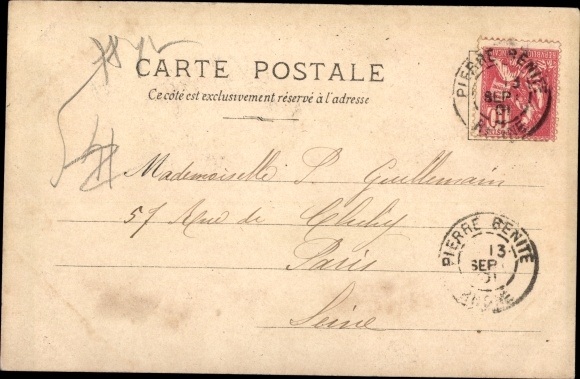 CARTE POSTALE
Ce côté est exclusivement réservé à l'adresse
PIERRE BENITE
SEP
01
RHONE
Mademoiselle P. Guillemain
57 Rue de Clichy
Paris
Seine
PIERRE BENITE
13
SEP
01
RHONE